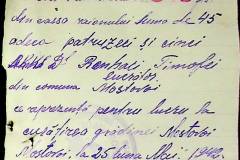 din cassa raionului suma de 45
adeca patruzeci și cinci
Dl Timofei
din comuna Mostovoi
ce reprezintă pentru lucru la
curățirea grădinei Mostovoi
Mostovoi, la 25 luna Maiu 1942